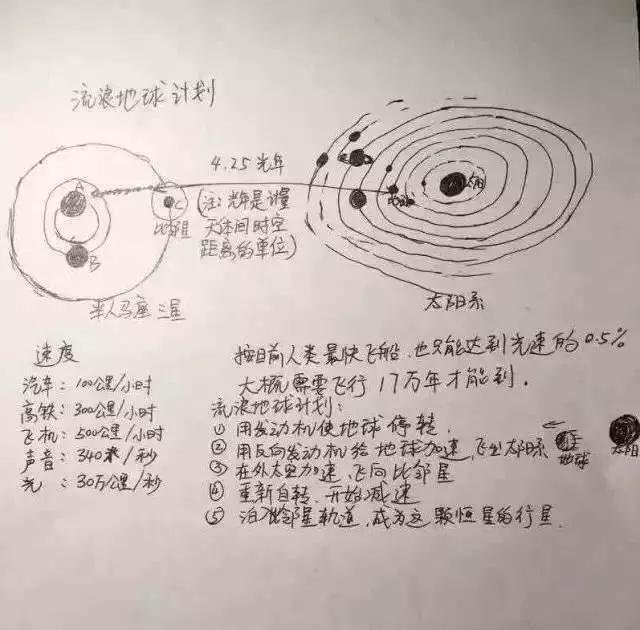 流浪地球计划
4.25光年
(注:光年是计量
天体间时空
距离的单位)
A
B
C
比邻星
半人马座三星
太阳
地球
太阳系
速度
汽车:100公里/小时
高铁:300公里/小时
飞机:500公里/小时
声音:340米/秒
光:30万公里/秒
按目前人类最快飞船,也只能达到光速的0.5%
大概需要飞行17万年才能到.
流浪地球计划:
① 用发动机使地球停转.
② 用反向发动机给地球加速,飞出太阳系
③ 在外太空加速,飞向比邻星
④ 重新自转,开始减速
⑤ 泊入比邻星轨道,成为这颗恒星的行星.
地球
太阳